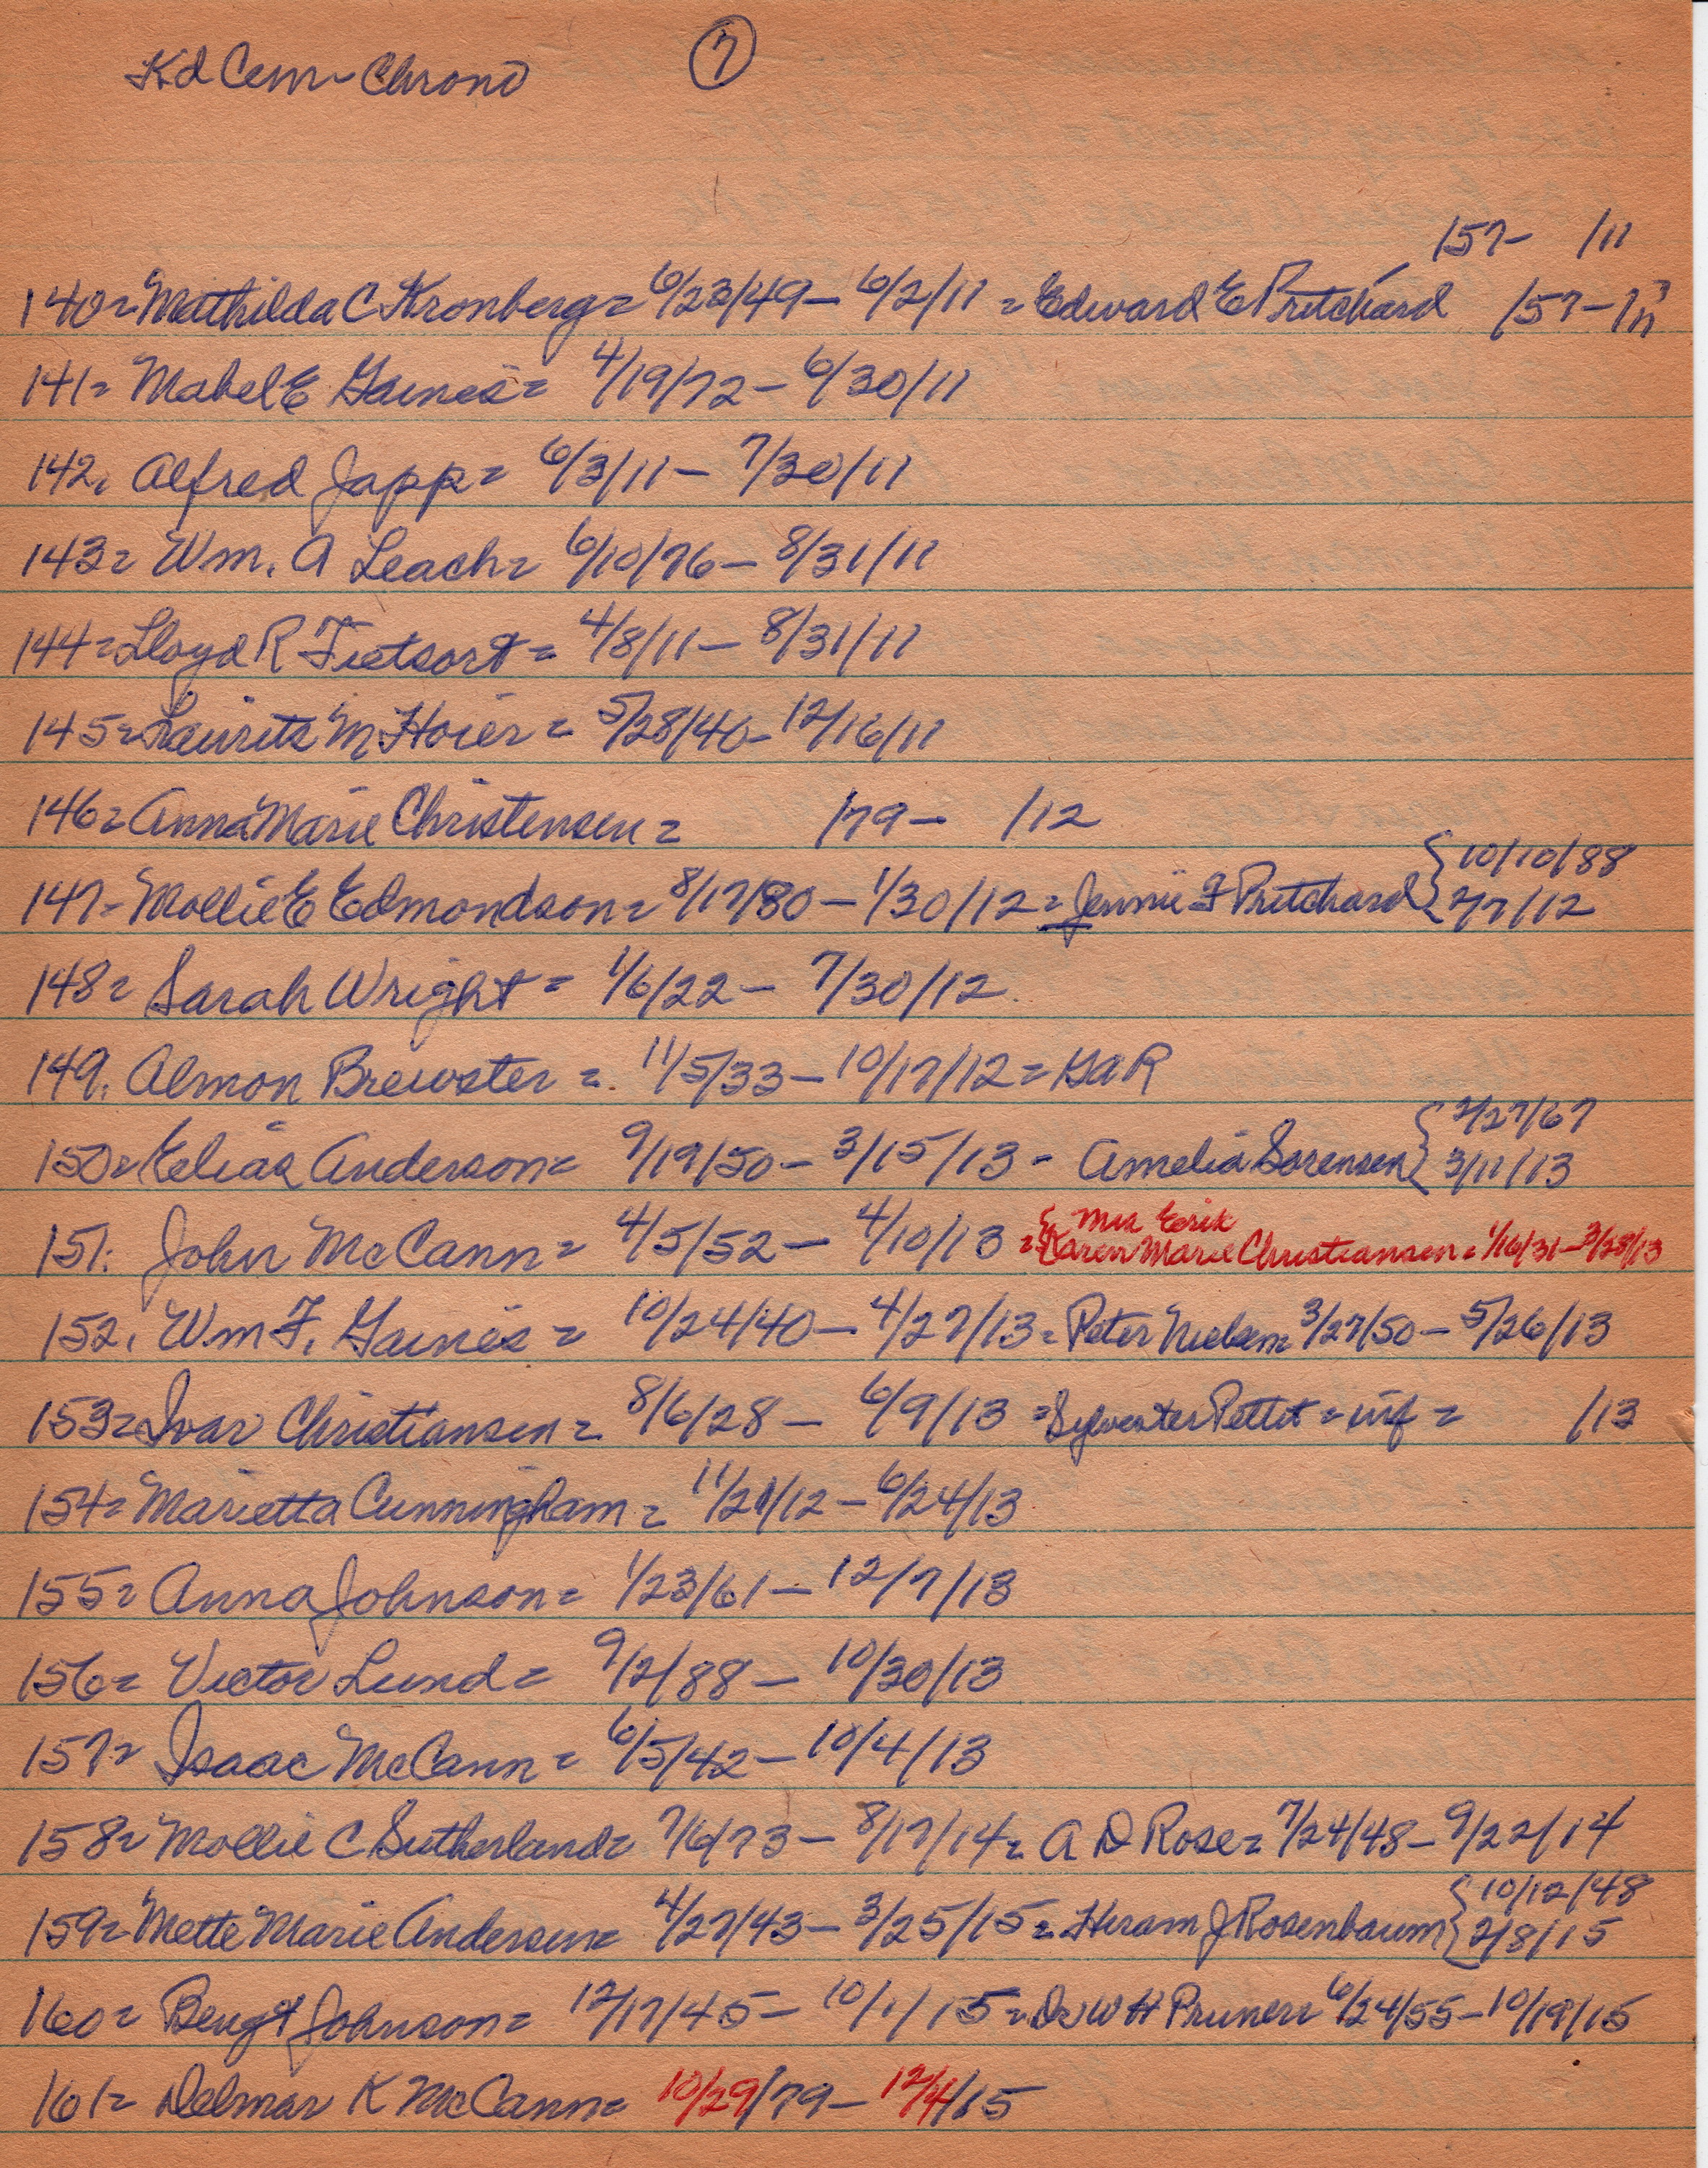 Kd Cem - Chrono 7
157- /11
140= Mathilda C Kronberg= 6/23/49 - 6/2/11 = Edward E Pritchard 157-
141= Mabel E Gaines= 4/19/72 - 6/30/11
142. Alfred Japp= 6/3/11 - 7/30/11
143= Wm. A Leach= 6/10/76 - 8/31/11
144= Lloyd R Tietsort= 4/8/11 - 8/31/11
145= Lauritz M Hoier= 5/28/40 - 12/16/11
146= Anna Marie Christensen= /79 - /12
147= Mollie E Edmondson= 8/17/80 - 1/30/12 = Jennie F Pritchard { 10/10/88
2/7/12
148= Sarah Wright= 1/6/22 - 7/30/12
149. Almon Brewster= 11/5/33 - 10/17/12 = GAR
150= Elias Anderson= 9/19/50 - 3/15/13 - Amelia Sorensen { 2/27/67
3/11/13
151. John McCann= 4/5/52 - 4/10/13 = { Mrs Erik
Karen Marie Christiansen= 1/16/31 - 3/28/13
152. Wm F. Gaines= 10/24/40 - 4/27/13 = Peter Nielsen= 3/27/50 - 5/26/13
153= Ivar Christiansen= 8/6/28 - 6/9/13 = Sylvester Pettit = inf = /13
154= Marietta Cunningham= 11/21/12 - 6/24/13
155= Anna Johnson= 1/23/61 - 12/7/13
156= Victor Lund= 9/2/88 - 10/30/13
157= Isaac McCann= 6/5/42 - 10/4/13
158= Mollie C Sutherland= 7/6/73 - 8/17/14 = A D Rose= 7/24/48 - 9/22/14
159= Mette Marie Andersen= 4/27/43 - 3/25/15 = Hiram J Rosenbaum { 10/12/48
2/8/15
160= Bengt Johnson= 12/17/45 - 10/1/15 = Dr W H Pruner= 6/24/55 - 10/19/15
161= Delmar K McCann= 10/29/79 - 12/4/15